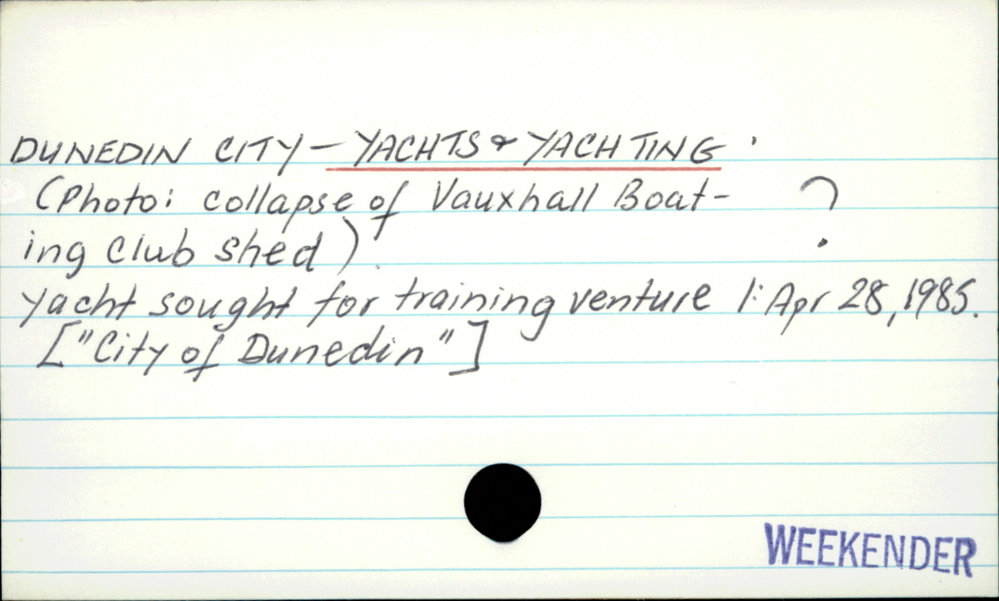 DUNEDIN CITY - YACHTS & YACHTING.
(Photo: collapse of Vauxhall Boat- ?
ing Club shed).
Yacht sought for training venture 1: Apr 28, 1985.
["City of Dunedin"]
WEEKENDER